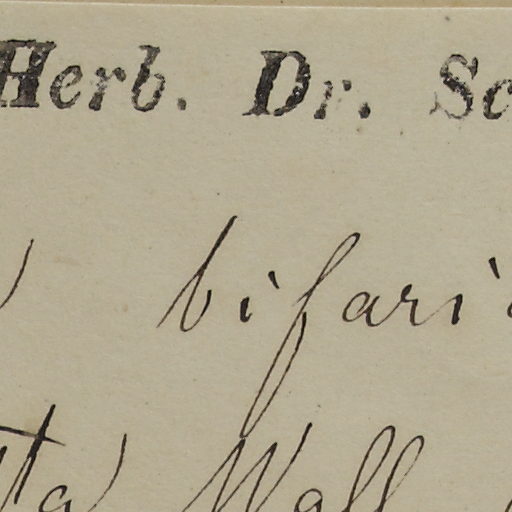 Herb. Dr. Sc
bifari
ta) Wall